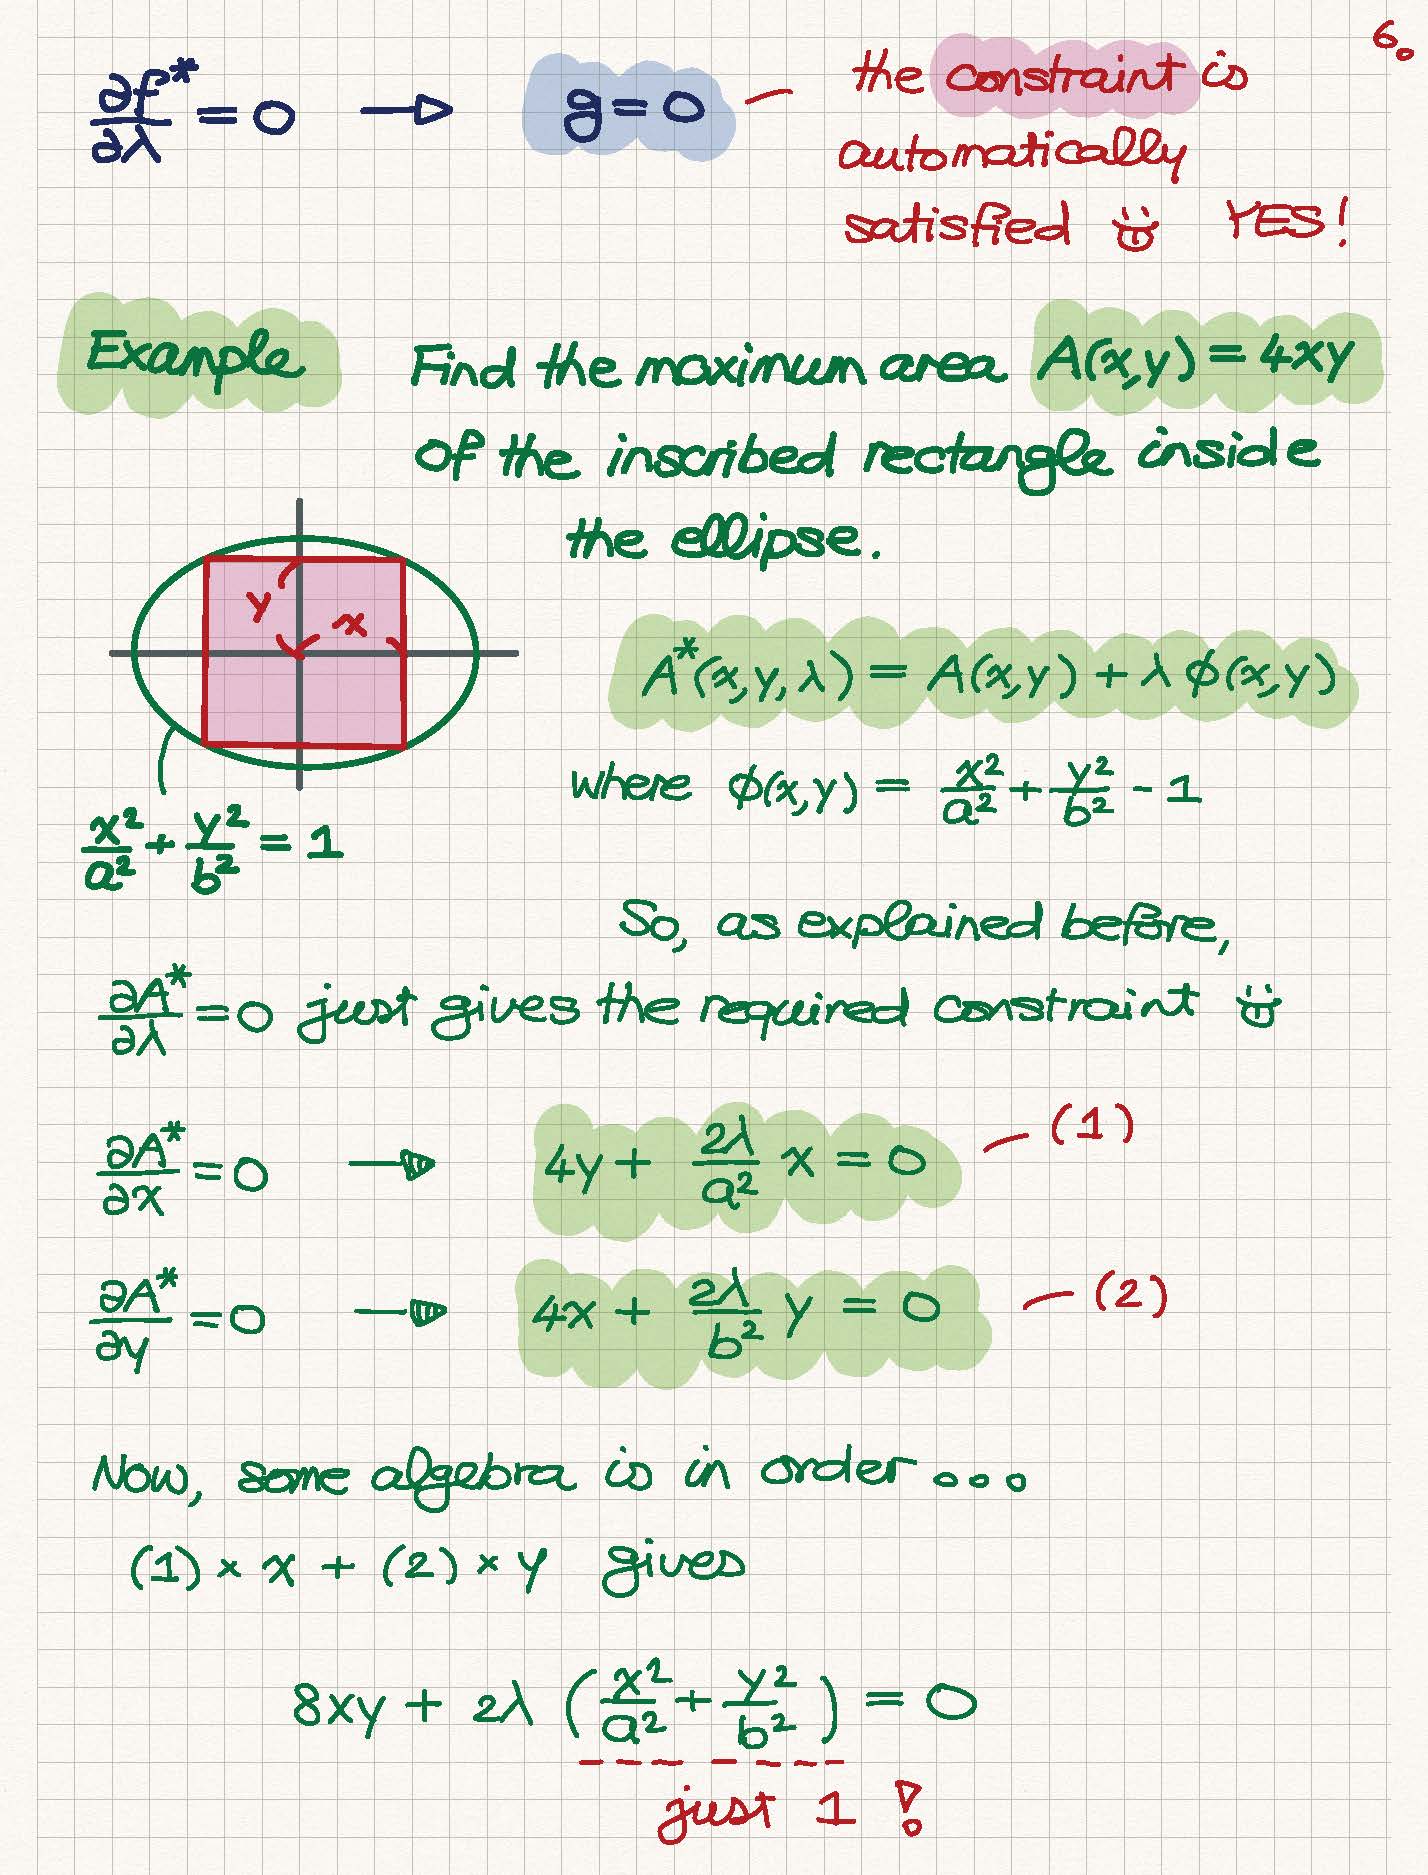 6.
∂f*/∂λ = 0 → g = 0 — the constraint is
automatically
satisfied YES!
Example Find the maximum area A(x,y) = 4xy
of the inscribed rectangle inside
the ellipse.
y
x
A*(x,y,λ) = A(x,y) + λ φ(x,y)
where φ(x,y) = x²/a² + y²/b² - 1
x²/a² + y²/b² = 1
So, as explained before,
∂A*/∂λ = 0 just gives the required constraint
∂A*/∂x = 0 → 4y + 2λ/a² x = 0 — (1)
∂A*/∂y = 0 → 4x + 2λ/b² y = 0 — (2)
Now, some algebra is in order...
(1) × x + (2) × y gives
8xy + 2λ (x²/a² + y²/b²) = 0
just 1 !